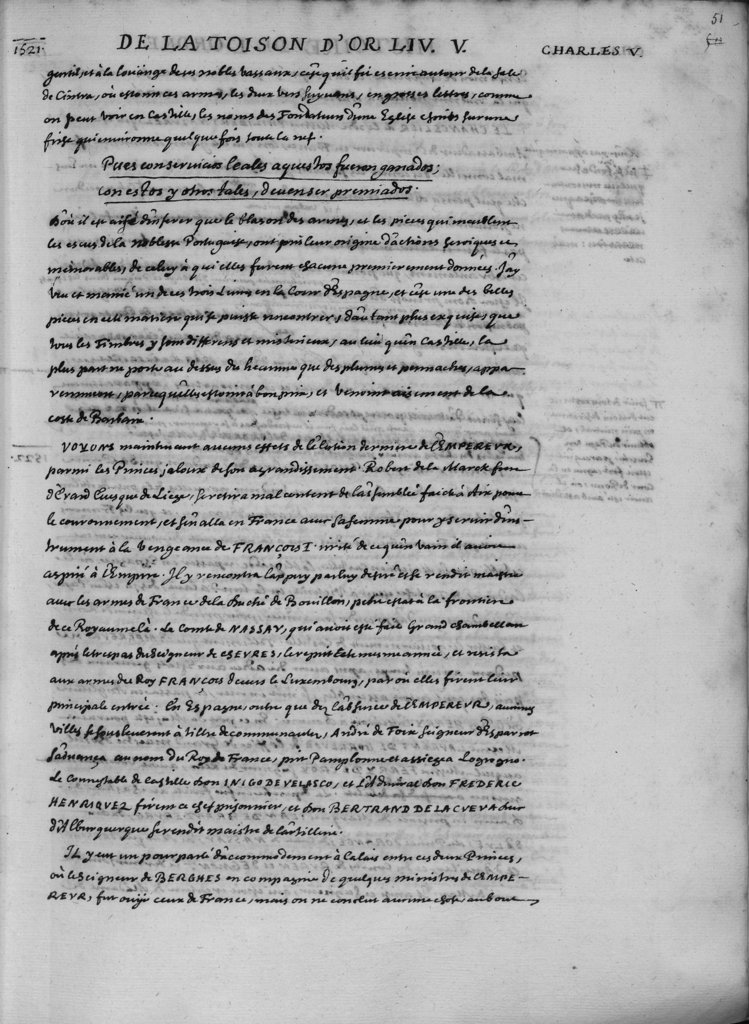 51
1521. DE LA TOISON D'OR LIV. V. CHARLES V.
gentil, et à la loüange de ses nobles vassaux, c'est qu'il fit escrire autour de la sale
de Cintra, où estoient ces armes, les deux vers suyvans, en grosses lettres, comme
on peut voir en Castille, les noms des Fondateurs d'une Eglise escrits sur une
frise qui environne quelque fois toute la nef.
Pues con servicios leales aquestos fueron ganados;
con estos y otros tales, deven ser premiados.
D'où il est aisé d'inferer que le blason des armes, et les pieces qui meublent
les escus de la noblesse Portuguese, ont pris leur origine d'actions heroiques et
memorables, de celuy à qui elles furent chacune premierement données. J'ay
veu et manié un de ces trois Livres en la Cour d'Espagne, et c'est une des belles
pieces en cete matiere qui se puisse rencontrer, d'autant plus exquise, que
tous les Timbres y sont differens et misterieux, au lieu qu'en Castille, la
plus part ne porte au dessus du heaume que des plumes et pennaches, appa-
remment, parcequ'elles estoient à bon prix, et venoient aisement de la
coste de Barbarie.
VOYONS maintenant aucuns effets de l'election derniere de l'EMPEREUR,
parmi les Princes jaloux de son agrandissement. Robert de la Marck frere
d'Erard Evesque de Liege, se retira mal content de l'assemblée faicte à Aix pour
le couronnement, et s'en alla en France avec sa femme pour y servir d'ins-
trument à la vengeance de FRANÇOIS I. irrité de ce qu'en vain il avoit
aspiré à l'Empire. Il y rencontra l'appuy par luy desiré et se rendit maistre
avec les armes de France de la Duché de Bouillon, petit estat à la frontiere
de ce Royaume là. Le Comte de NASSAV, qui avoit esté faict Grand Chambellan
après le trespas du Seigneur de CHEVRES, le reprit la mesme année, et resista
aux armes du Roy FRANÇOIS devers le Luxembourg, par où elles firent leur
principale entrée. En Espagne, outre que dez l'absence de l'EMPEREUR, aucunes
villes se sousleverent à tiltre de communautez, André de Foix Seigneur d'Esparrot
s'advança au nom du Roy de France, prit Pamplonne et assiegea Logrogno.
Le Connestable de Castille Don INIGO DE VELASCO, et l'Admiral Don FREDERIC
HENRIQUEZ firent ce chef prisonnier, et Don BERTRAND DE LA CUEVA Duc
d'Alburquerque se rendit maistre de l'artillerie.
IL y eut un pourparlé d'accommodement à Calais entre ces deux Princes,
où le Seigneur de BERGHES en compagnie de quelques ministres de l'EMPE-
REUR, fut ouïr ceux de France, mais on ne conclut aucune chose, au bout